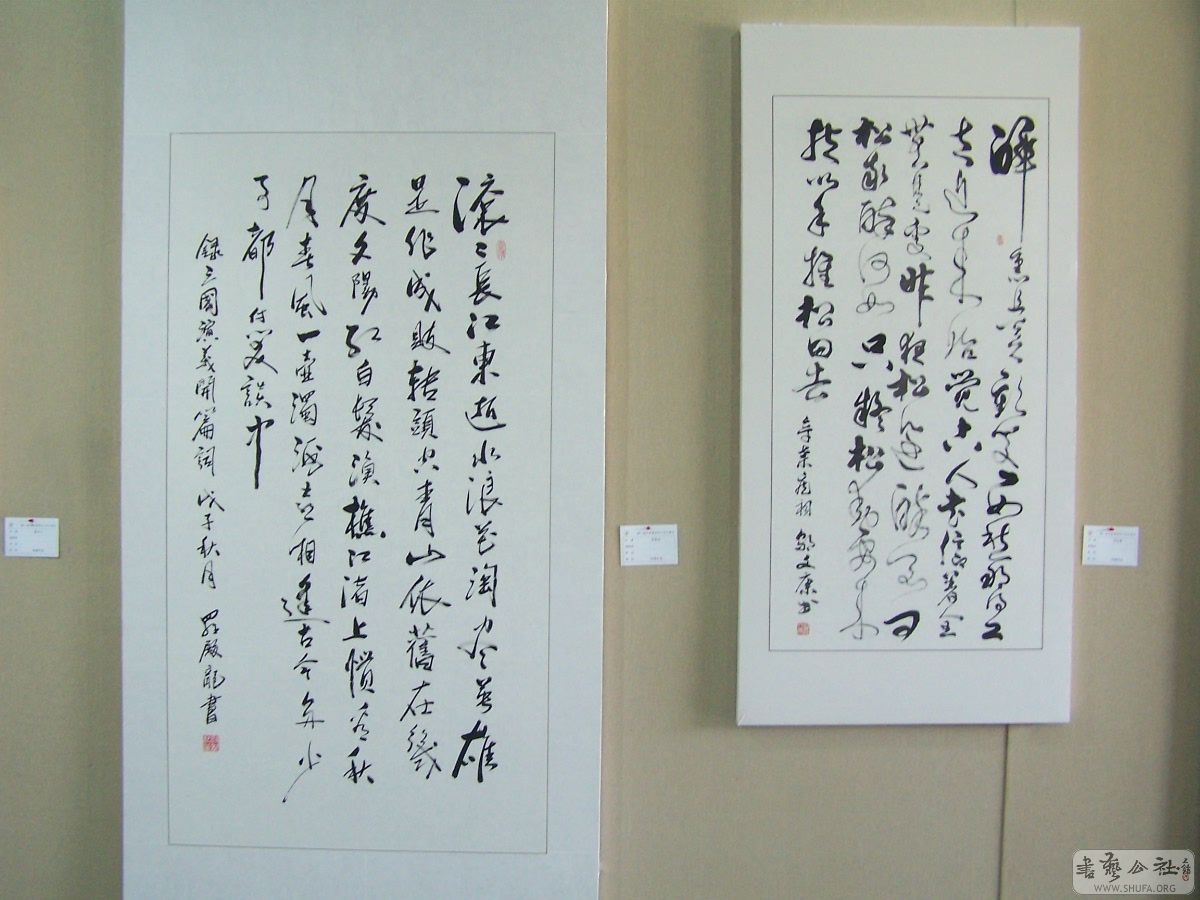 滚〻長江東逝水浪花淘盡英雄
是非成敗轉頭空青山依舊在幾
度夕陽紅白髮漁樵江渚上慣看秋
月春風一壺濁酒喜相逢古今多少
事都付笑談中
錄三國演義開篇詞 戊子秋月 羅殿龍書
醉里且貪歡笑要愁那得工
夫近來始覺古人書信著全
無是處昨夜松邊醉倒問
松我醉何如只疑松動要來
扶以手推松曰去 辛棄疾詞 文康书
書藝公社
WWW.SHUFA.ORG